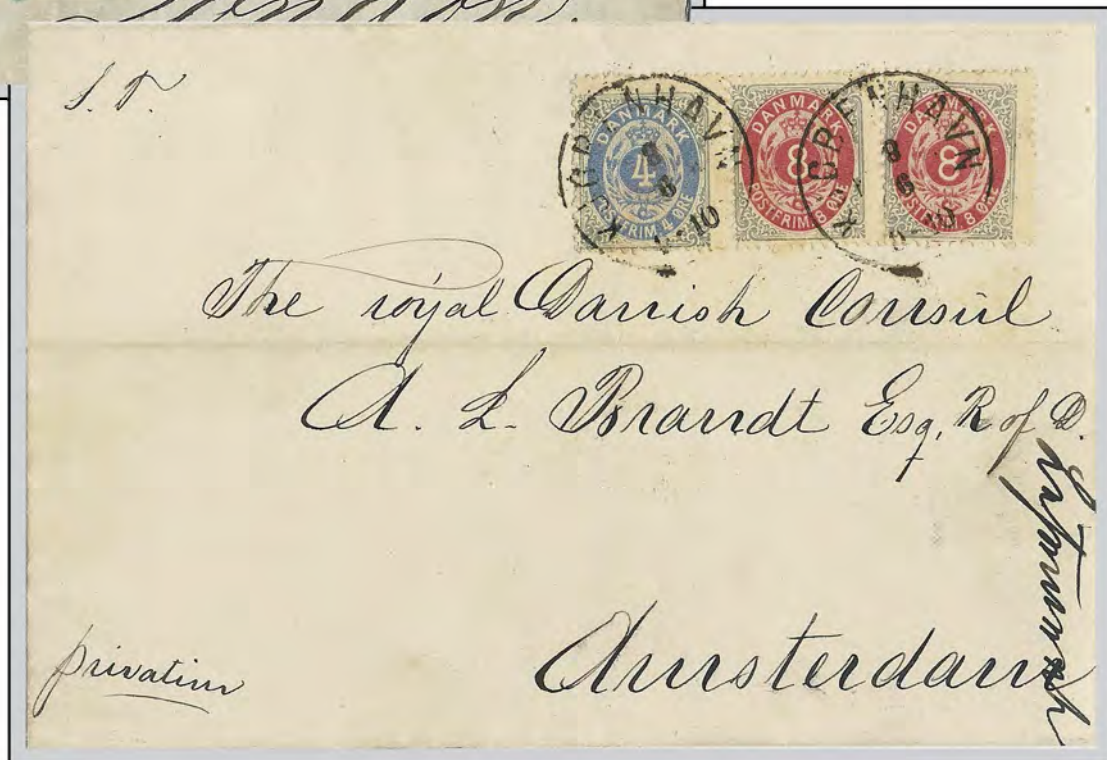 London.
S. T.
KJØBENHAVN
8
8
DANMARK
4
POSTFRIM. 4 ØRE
DANMARK
8
POSTFRIM. 8 ØRE
KJØBENHAVN
8
8
DANMARK
8
POSTFRIM. 8 ØRE
The royal Danish Consul
A. L. Brandt Esq, R of D.
Amsterdam
privatim